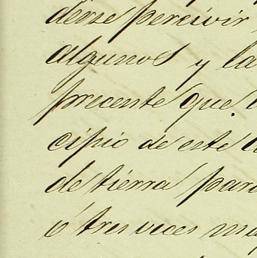 derse percivir
algunos y la
precente que
cipio de este
de tierra para
ó tres veces ma